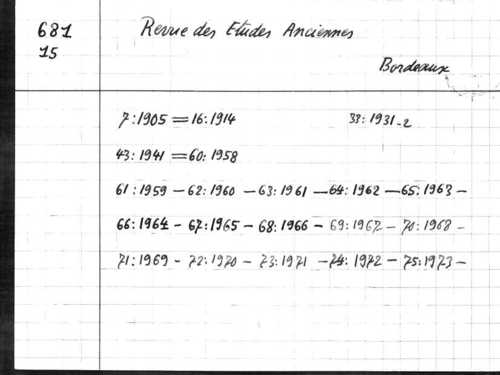 681 Revue des Etudes Anciennes
15
Bordeaux
7:1905 = 16:1914 33:1931-2
43:1941 = 60:1958
61:1959 - 62:1960 - 63:1961 - 64:1962 - 65:1963 -
66:1964 - 67:1965 - 68:1966 - 69:1967 - 70:1968 -
71:1969 - 72:1970 - 73:1971 - 74:1972 - 75:1973 -